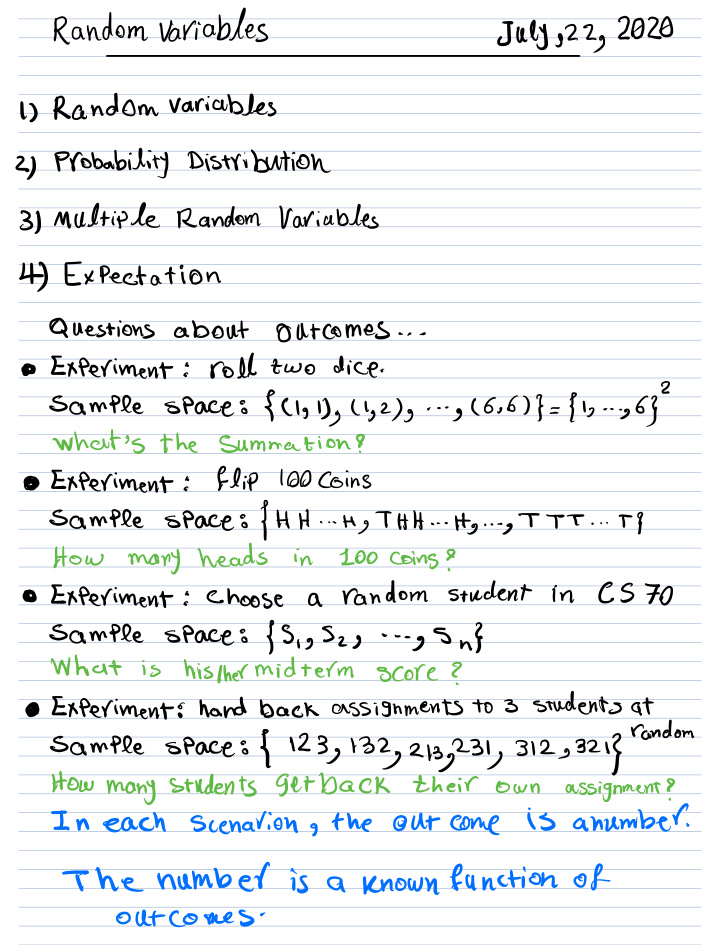 Random Variables July, 22, 2020
1) Random Variables
2) Probability Distribution
3) Multiple Random Variables
4) Expectation
Questions about outcomes...
• Experiment: roll two dice.
Sample space: {(1,1), (1,2), ..., (6,6)} = {1, ..., 6}²
What's the Summation?
• Experiment: flip 100 Coins
Sample space: {HH...H, THH...H, ..., TTT...T}
How many heads in 100 coins?
• Experiment: choose a random student in CS 70
Sample space: {S₁, S₂, ..., Sₙ}
What is his/her midterm score?
• Experiment: hand back assignments to 3 students at
Sample space: { 123, 132, 213, 231, 312, 321} random
How many students get back their own assignment?
In each Scenarion, the out come is a number.
The number is a known function of
outcomes.